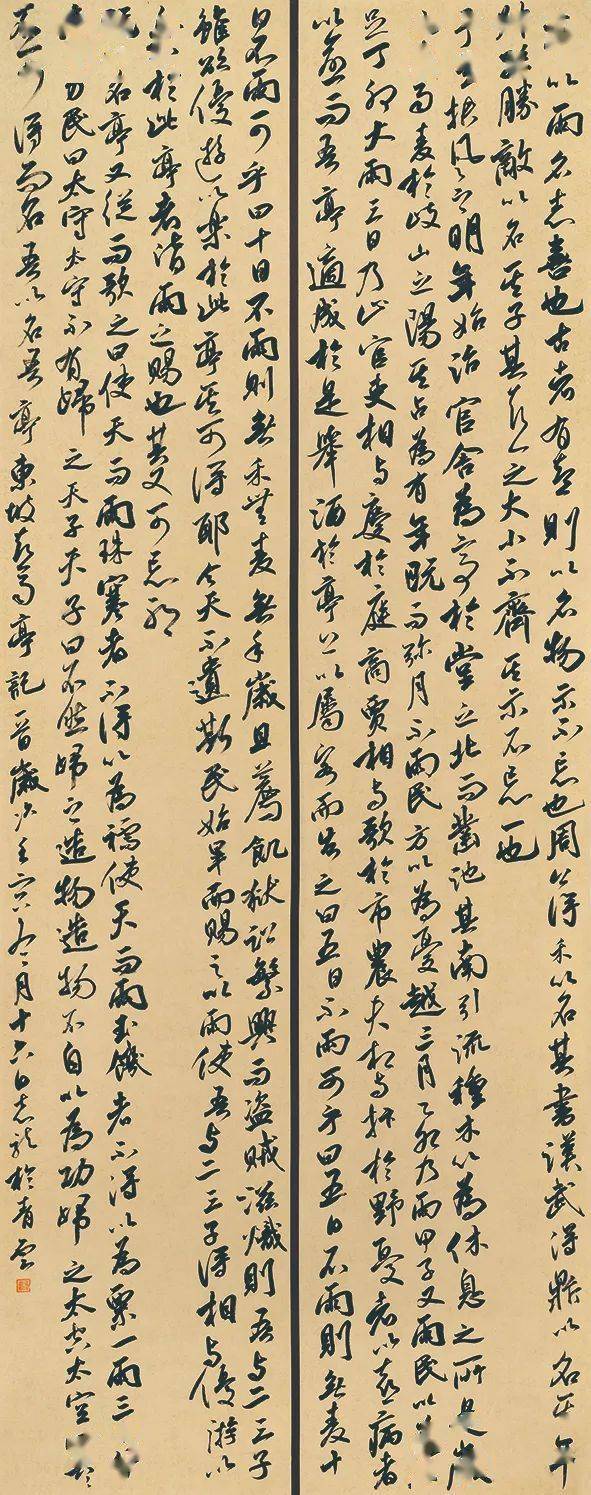 以雨名志喜也古者有喜則以名物示不忘也周公得禾以名其書漢武得鼎以名其年
勝敵以名其子其喜之大小不齊其示不忘一也
予至扶風之明年始治官舍為亭於堂之北而鑿池其南引流種木以為休息之所是歲
雨麥於岐山之陽其占為有年既而彌月不雨民方以為憂越三月乙卯乃雨甲子又雨民以為
足丁卯大雨三日乃止官吏相与慶於庭商賈相与歌於市農夫相与抃於野憂者以喜病者
以愈而吾亭適成於是舉酒於亭上以屬客而告之曰五日不雨可乎曰五日不雨則無麥十
日不雨可乎曰十日不雨則無禾無麥無禾歲且薦飢獄訟繁興而盜賊滋熾則吾与二三子
雖欲優遊以樂於此亭其可得耶今天不遺斯民始旱而賜之以雨使吾与二三子得相与優游以
樂於此亭者皆雨之賜也其又可忘耶
既名亭又從而歌之曰使天而雨珠寒者不得以為襦使天而雨玉饑者不得以為粟一雨三
力民曰太守太守不有歸之天子天子曰不然歸之造物造物不自以為功歸之太空太空
不可得而名吾以名吾亭東坡喜雨亭記一首歲次壬寅九月十六日志龍於青雲